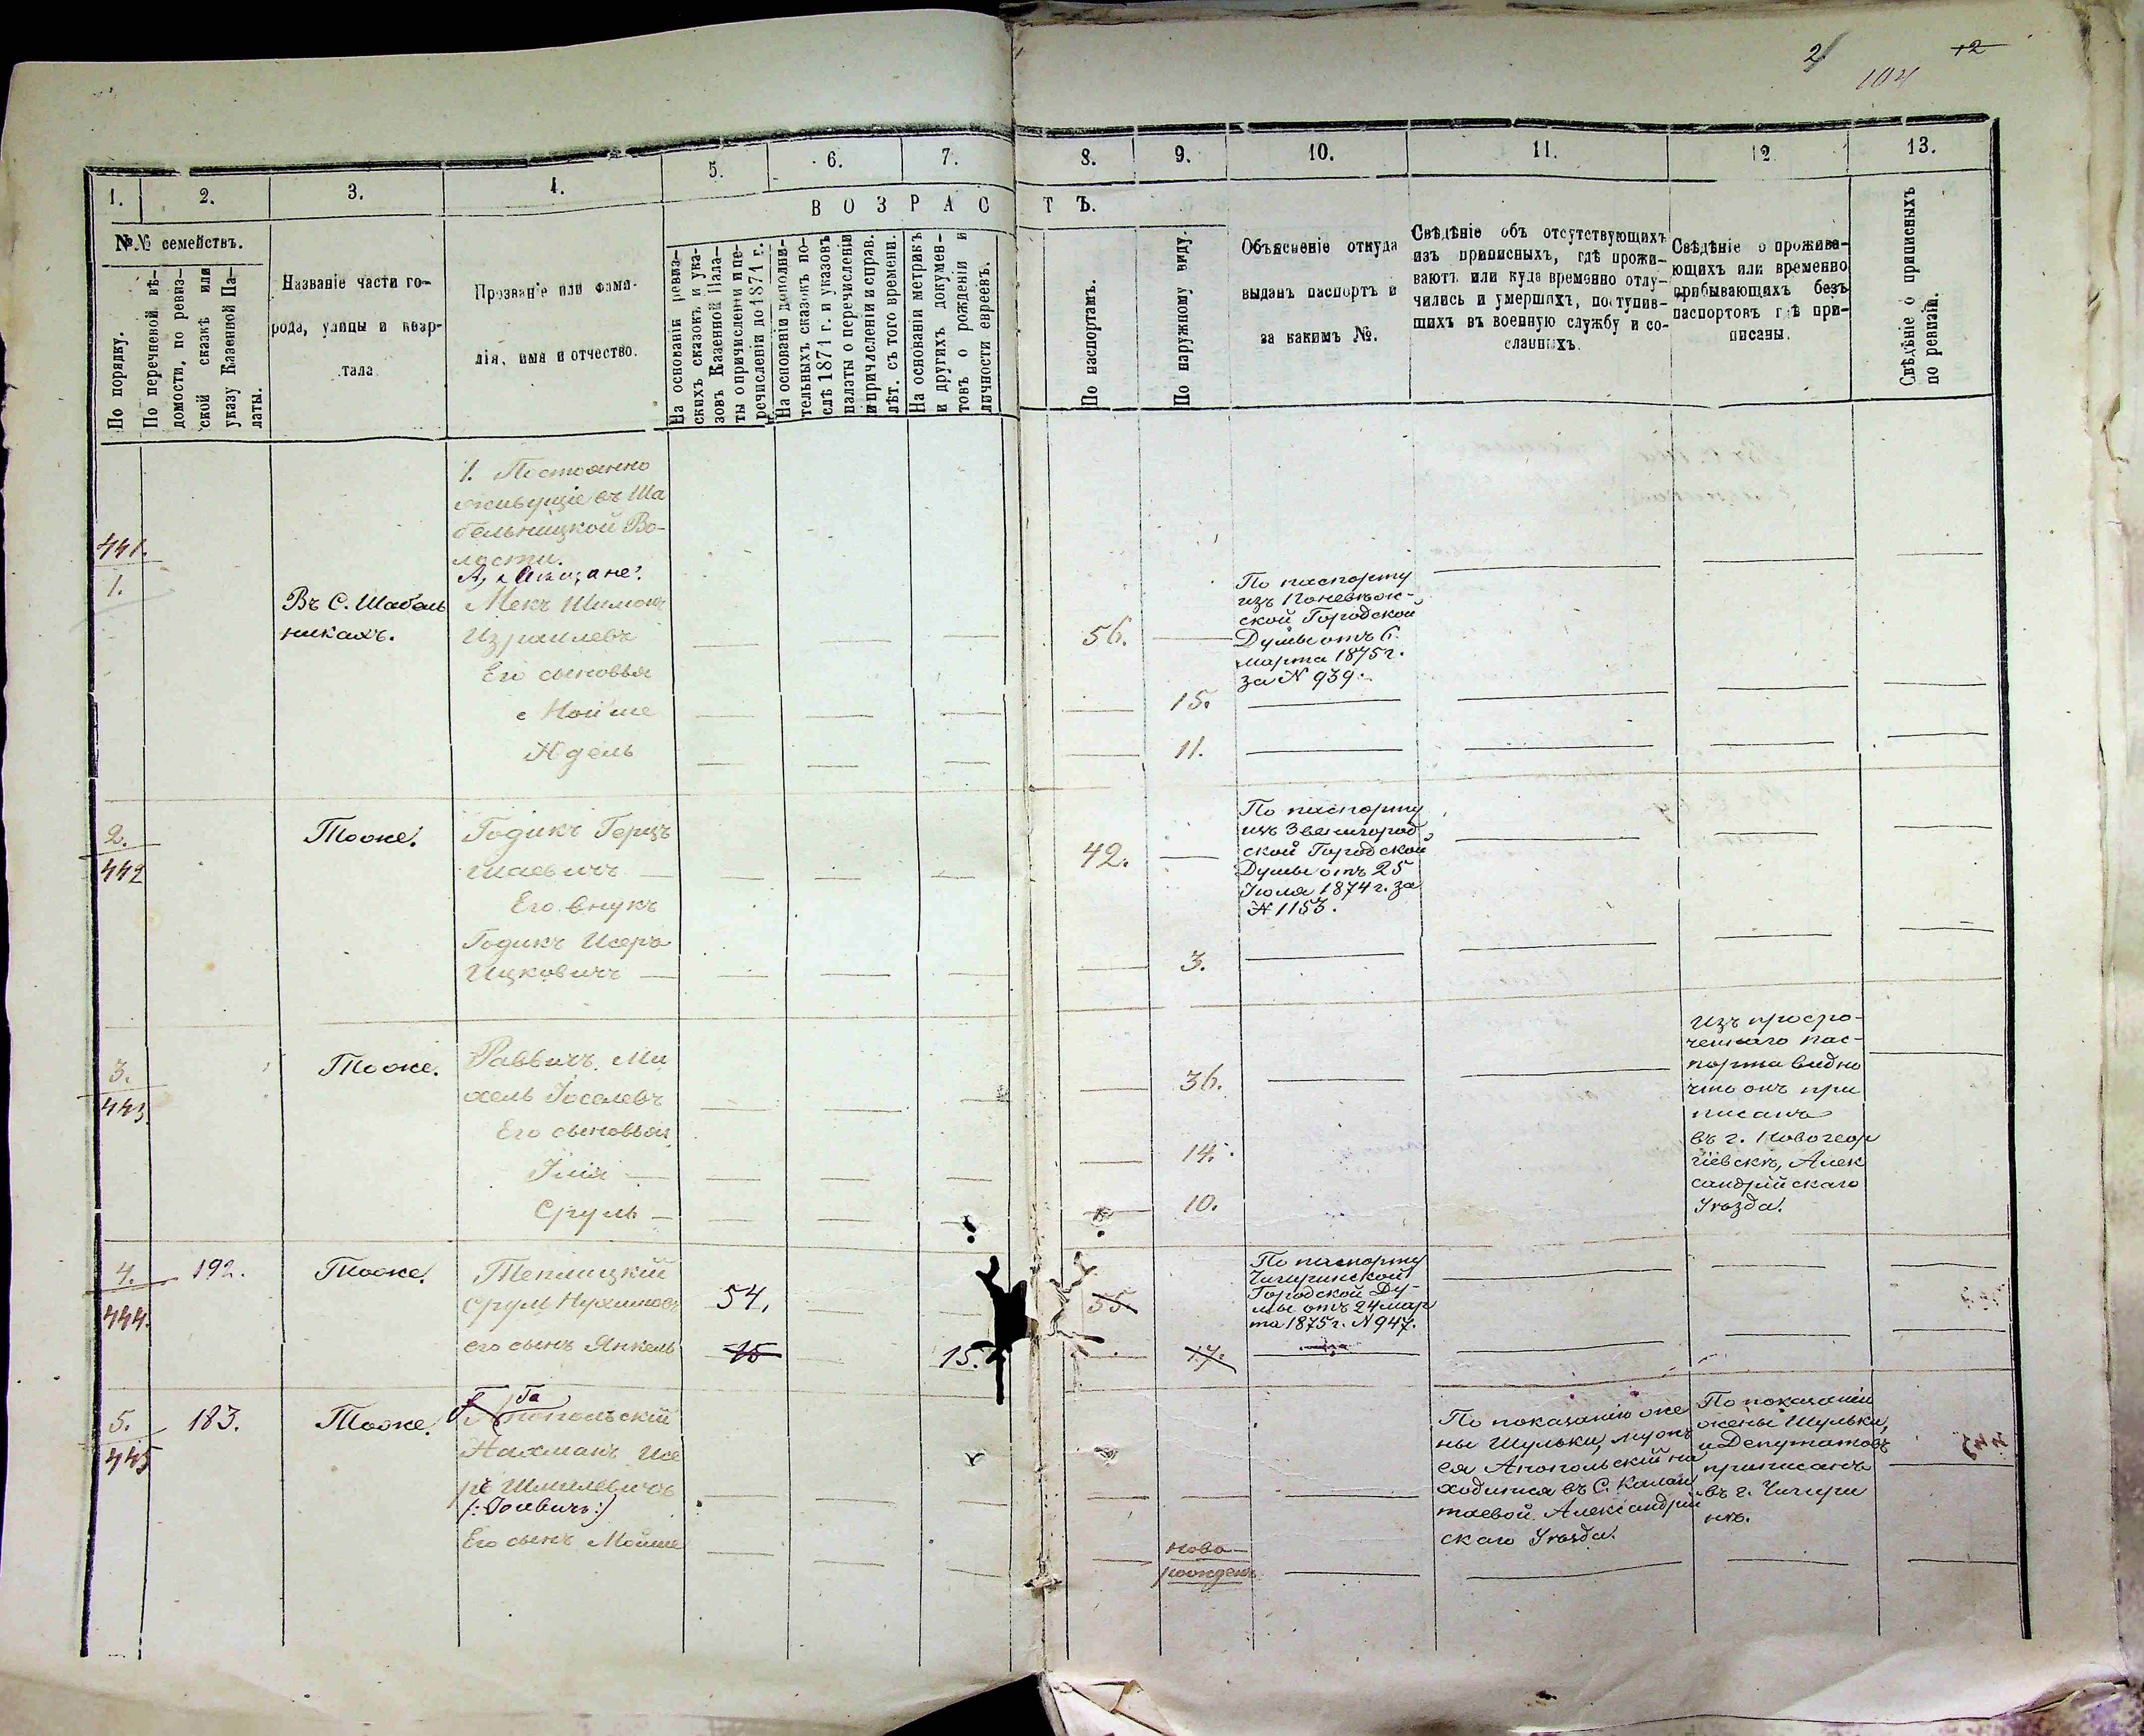 2
12
104
1.
2.
3.
4.
5.
6.
7.
8.
9.
10.
11.
12
13.
ВОЗРАСТЪ.
№№ семействъ.
По порядку.
По перечневой вѣ-
домости, по ревиз-
ской сказкѣ или
указу Казенной Па-
латы.
Названіе части го-
рода, улицы и квар-
тала
Прозваніе или фами-
лія, имя и отчество.
На основаніи ревиз-
скихъ сказокъ и ука-
зовъ Казенной Пала-
ты о причисленіи и пе-
речисленіи до 1871 г.
На основаніи дополни-
тельныхъ сказокъ по-
слѣ 1871 г. и указовъ
палаты о перечисленіи
и причисленіи и справ.
лѣт. съ того времени.
На основаніи метрикъ
и другихъ докумен-
товъ о рожденіи и
личности евреевъ.
По паспортамъ.
По наружному виду.
Объясненіе откуда
выданъ паспортъ и
за какимъ №.
Свѣдѣніе объ отсутствующихъ
изъ приписныхъ, гдѣ прожи-
ваютъ или куда временно отлу-
чились и умершихъ, поступив-
шихъ въ военную службу и со-
сланныхъ.
Свѣдѣніе о прожива-
ющихъ или временно
прибывающихъ безъ
паспортовъ гдѣ при-
писаны.
Свѣдѣніе о приписныхъ
по ревизіи.
1. Постоянно
живущіе въ Ша
бельницкой Во-
лости.
А, Мѣщане.
441.
1.
Въ С. Шабель
никахъ.
Мекъ Шимонъ
Израилевъ
Его сыновья
Мойше
Идель
56.
15.
11.
По паспорту
изъ Поневѣж-
ской Городской
Думы отъ 6
марта 1875 г.
за № 939.
2.
442
Тоже.
Годикъ Герцъ
Его внукъ
Годикъ Исеръ
Ицковичъ
42.
3.
По паспорту
изъ Звенигород-
ской Городской
Думы отъ 25
Іюля 1874 г. за
№ 1153.
3.
443.
Тоже.
Раввичъ Ми
хель Іоселевъ
Его сыновья
Сруль
36.
14.
10.
Изъ просро-
ченнаго пас-
порта видно
что онъ при
писанъ
въ г. Новогеор
гіевскѣ, Алек
сандрійскаго
Уѣзда.
4.
444.
192.
Тоже.
Теплицкій
Сруль Нухимовъ
его сынъ Янкель
54.
15
15.
55
17.
По паспорту
Чигиринской
Городской Ду-
мы отъ 24 мар
та 1875 г. № 947.
5.
445
183.
Тоже.
Га
Апопольскій
Нахманъ Исе
ръ Шмилевичъ
Его сынъ Мойше
ново-
рожденъ
По показанію же
ны Шульки, мужъ
ея Апопольскій на
ходится въ С. Калан
таевой Александрій
скаго Уѣзда.
По показанію
жены Шульки,
и Депутатовъ
приписанъ
въ г. Чигири
нѣ.